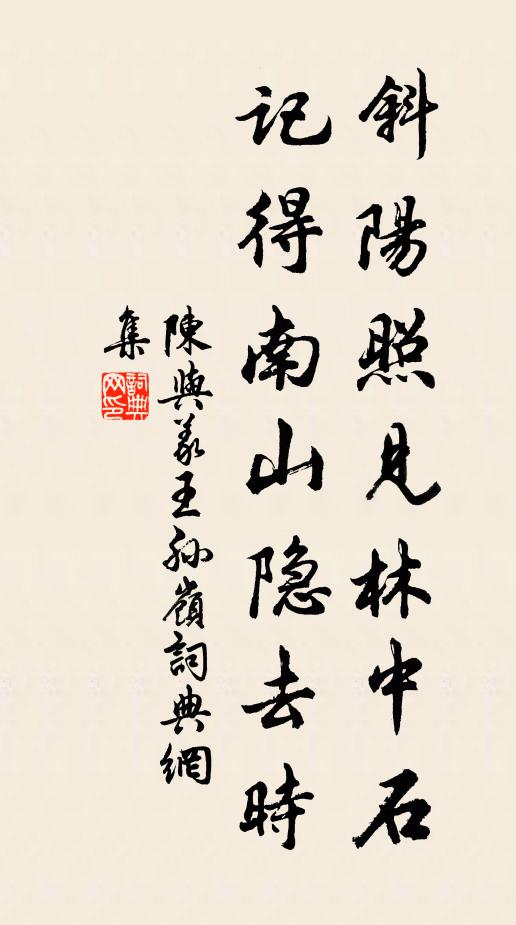 斜陽照見林中石
記得南山隐去時
陳與義王孫嶺詞典網
集
詞典
网印